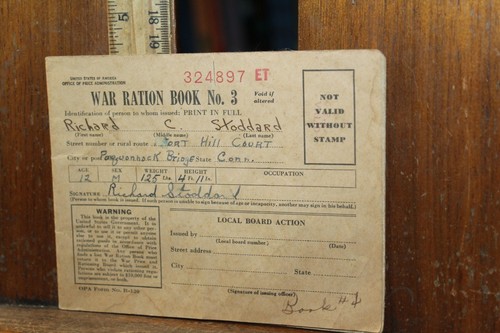 UNITED STATES OF AMERICA
OFFICE OF PRICE ADMINISTRATION
324897 ET
WAR RATION BOOK No. 3
Void if altered
Identification of person to whom issued: PRINT IN FULL
Richard C. Stoddard
(First name) (Middle name) (Last name)
Street number or rural route Fort Hill Court
City or post Poquonnock Bridge State Conn.
AGE SEX WEIGHT HEIGHT OCCUPATION
12 M 125 Lbs. 4 Ft. 11 In.
SIGNATURE Richard Stoddard
(Person to whom book is issued. If such person is unable to sign because of age or incapacity, another may sign in his behalf.)
NOT
VALID
WITHOUT
STAMP
WARNING
This book is the property of the
United States Government. It is
unlawful to sell it to any other per-
son, or to use it or permit anyone
else to use it, except to obtain
rationed goods in accordance with
regulations of the Office of Price
Administration. Any person who
finds a lost War Ration Book must
return it to the War Price and
Rationing Board which issued it.
Persons who violate rationing regu-
lations are subject to $10,000 fine
or imprisonment, or both.
LOCAL BOARD ACTION
Issued by
(Local board number) (Date)
Street address
City State
(Signature of issuing officer)
OPA Form No. R-130
Book #4
5
18
19